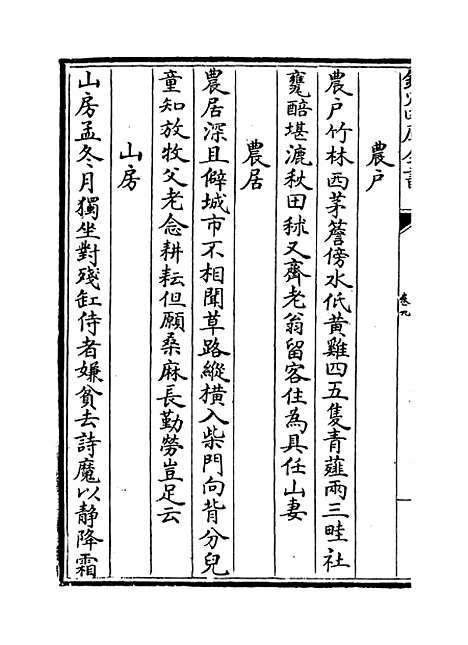 農戶
農戶竹林西茅簷傍水低黃雞四五隻青薤兩三畦社
甕醅堪漉秋田秫又齊老翁留客住為具任山妻
農居
農居深且僻城市不相聞草路縱橫入柴門向背分兒
童知放牧父老念耕耘但願桑麻長勤勞豈足云
山房
山房孟冬月獨坐對殘缸侍者嫌貧去詩魔以靜降霜
卷九